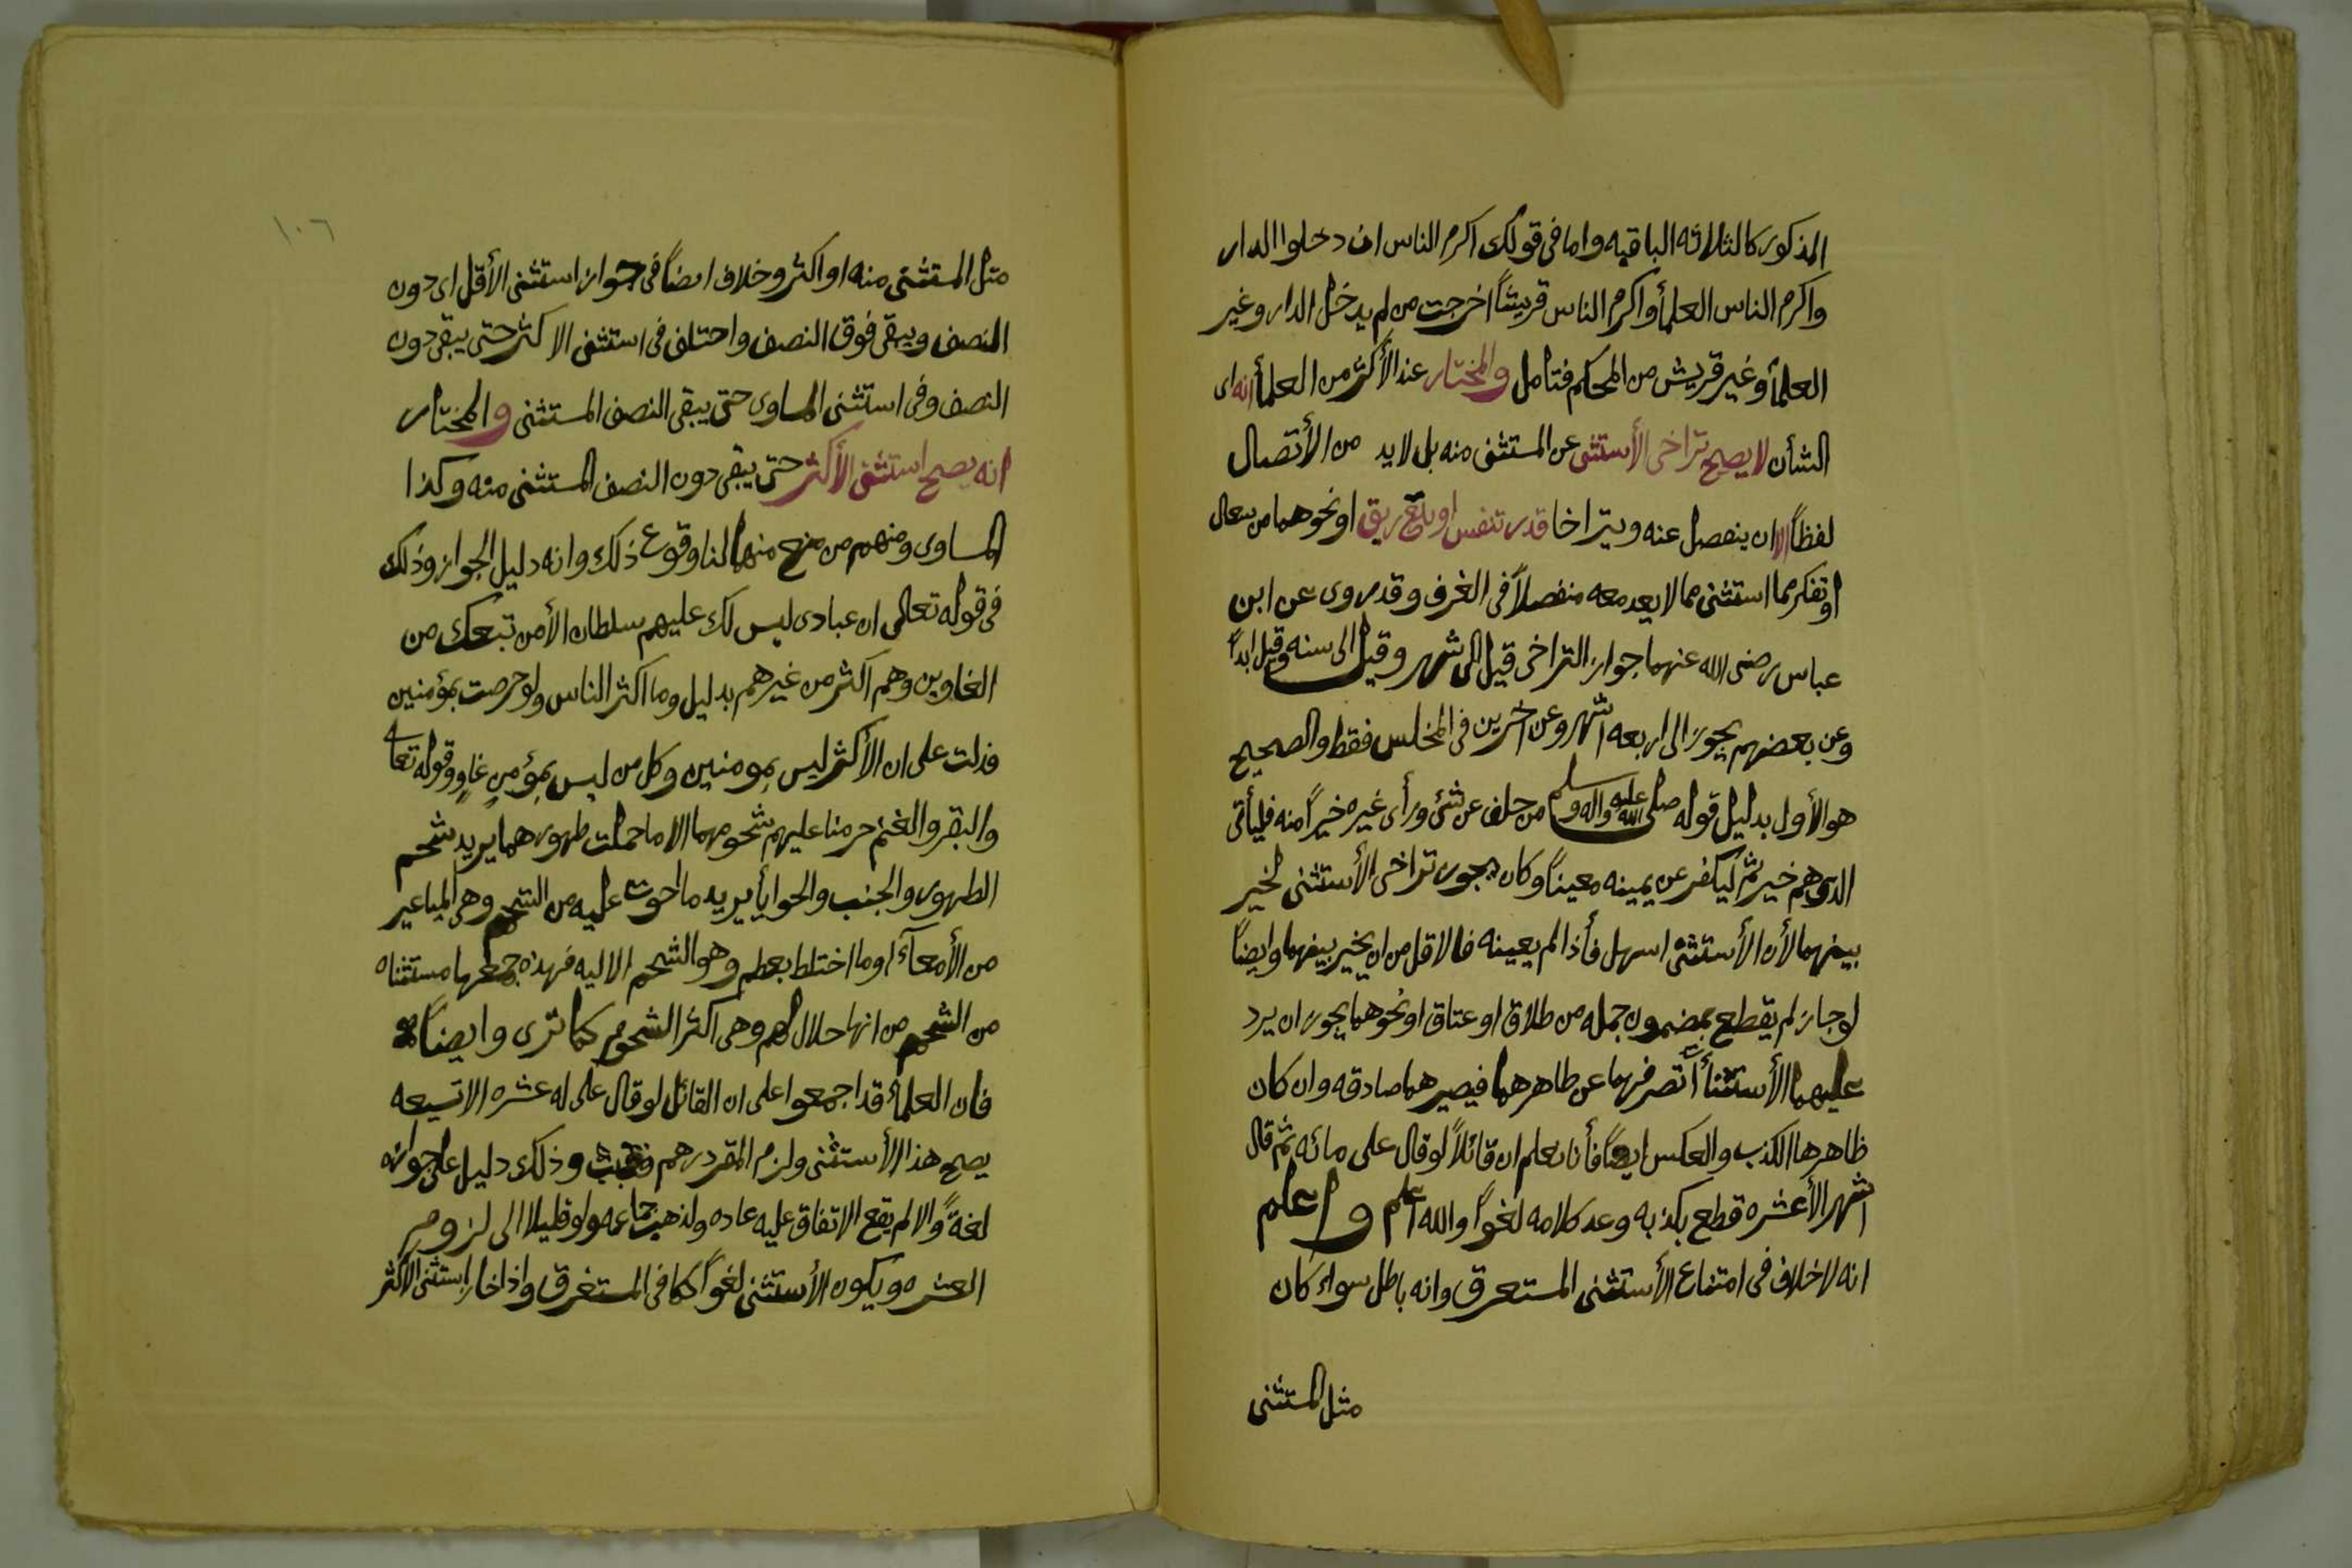 المذكور كالثلاثه الباقيه واما فى قولك اكرم الناس ان دخلوا الدار
واكرم الناس العلمأ واكرم الناس قريشاً اخرجت من لم يدخل الدار وغير
العلمأ وغير قريش من المحكم فتامل والمختار عند الأكثر من العلمأ انه اى
الشأن لا يصح تراخى الأستثنى عن المستثنى منه بل لابد من الأتصال
لفظاً الا ان ينفصل عنه ويتراخا قدر تنفس او بلع ريق او نحوهما من سعال
او تفكر مما استثنى مما لا يعد معه منفصلاً فى العرف وقد روى عن ابن
عباس رضى الله عنهما جواز التراخى قيل الى شهر وقيل الى سنه وقيل ابداً
وعن بعضهم يجوز الى اربعه اشهر وعن اخرين فى المخلس فقط والصحيح
هو الأول بدليل قوله صلى الله عليه واله وسلم من حلف عن شئ ورأى غيره خيراً منه فليأتى
الذى هم خير ثم ليكفر عن يمينه معيناً وكان يجوز تراخى الأستثنى لخير
بينهما لأن الأستثنى اسهل فأذا لم يعينه فالاقل من ان يخير بينهما وايضاً
لو جاز لم يقطع بمضمون جمله من طلاق او عتاق او نحوهما يجوز ان يرد
عليهما الأستثنأ تصرفهما عن ظاهرهما فيصيرهما صادقه وان كان
ظاهرها الكذب والعكس ايضاً فأنا نعلم ان قائلاً لو قال على مائه ثم قال
اشهر الأعشره قطع بكذبه وعد كلامه لغواً والله اعلم واعلم
انه لا خلاف فى امتناع الأستثنى المستعرق وانه باطل سواء كان
مثل المستثنى
١٠٦
مثل المستثنى منه او اكثر وخلاف ايضاً فى جواز استثنى الأقل اى دون
النصف ويبقى فوق النصف واختلف فى استثنى الاكثر حتى يبقى دون
النصف وفى استثنى المساوى حتى يبقى النصف المستثنى والمختار
انه يصح استثنى الأكثر حتى يبقى دون النصف المستثنى منه وكذا
المساوى ومنهم من منع منهما لنا وقوع ذلك وانه دليل الجواز وذلك
فى قوله تعالى ان عبادى ليس لك عليهم سلطان الأمن تبعك من
الغاوين وهم اكثر من غيرهم بدليل وما اكثر الناس ولو حرصت بمؤمنين
فدلت على ان الأكثر ليس بمومنين وكل من ليس بمؤمن غاوٍ وقوله تعا
والبقر والغنم حرمنا عليهم شحومهما الا ما حملت ظهورهما يريد شحم
الظهور والجنب والحوايأ يريد ما احوت عليه من الشحم وهى المباعير
من الأمعآء او ما اختلط بعظم وهو الشحم الاليه فهذه جمعها مستثناه
من الشحم من انها حلال لهم وهى اكثر الشحوم كما ترى وايضاً
فان العلمأ قد اجمعوا على ان القائل لو قال على له عشره الا تسعه
يصح هذا الأستثنى ولزم المقر درهم وذلك دليل على جوازه
لغةً والا لم يقع الاتفاق عليه عاده ولذهب جماعه ولو قليلا الى لزوم
العشره ويكون الأستثنى لغواً كما فى المستغرق واذا خار استثنى الأكثر